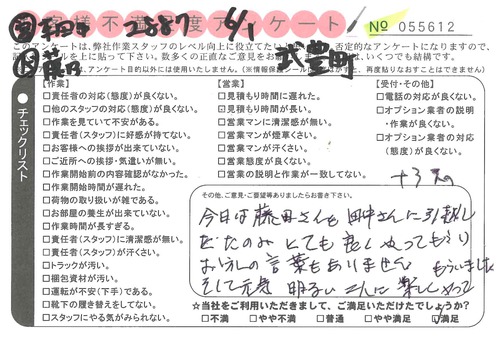 お客様不満足度アンケート
2887 6/1
No 055612
武豊町
このアンケートは、弊社作業スタッフのレベル向上に役立てたい
否定的なアンケートになりますので、
いくつでも結構です。
アンケート目的以外には使用いたしません。(※情報保護シール
再度貼りなおすことはできません)
チェックリスト
【作業】
□責任者の対応(態度)が良くない。
□他のスタッフの対応(態度)が良くない。
□作業を見ていて不安がある。
□責任者(スタッフ)に好感が持てない。
□お客様への挨拶が出来ていない。
□ご近所への挨拶・気遣いが無い。
□作業開始前の内容確認がなかった。
□作業開始時間が遅れた。
□荷物の取り扱いが雑である。
□お部屋の養生が出来ていない。
□作業時間が長すぎる。
□責任者(スタッフ)に清潔感が無い。
□責任者(スタッフ)が汗くさい。
□トラックが汚い。
□梱包資材が汚い。
□運転が不安(下手)である。
□靴下の履き替えをしてない。
□スタッフにやる気がみられない。
【営業】
□見積もり時間に遅れた。
□見積もり時間が長い。
□営業マンに清潔感が無い。
□営業マンが煙草くさい。
□営業マンが汗くさい。
□営業態度が良くない。
□営業の説明と作業が一致してない。
【受付・その他】
□電話の対応が良くない。
□オプション業者の説明
・作業が良くない。
□オプション業者の対応
(態度)が良くない。
その他、ご意見・ご要望等ありましたらお書き下さい。
今日は藤田さんと田中さんに引越し
とても良くやってもらい
の言葉もありません
そして元気 明るい 楽しくやって
もらいました
☆当社をご利用いただきまして、ご満足いただけたでしょうか?
□不満 □やや不満 □普通 □やや満足 ☑満足